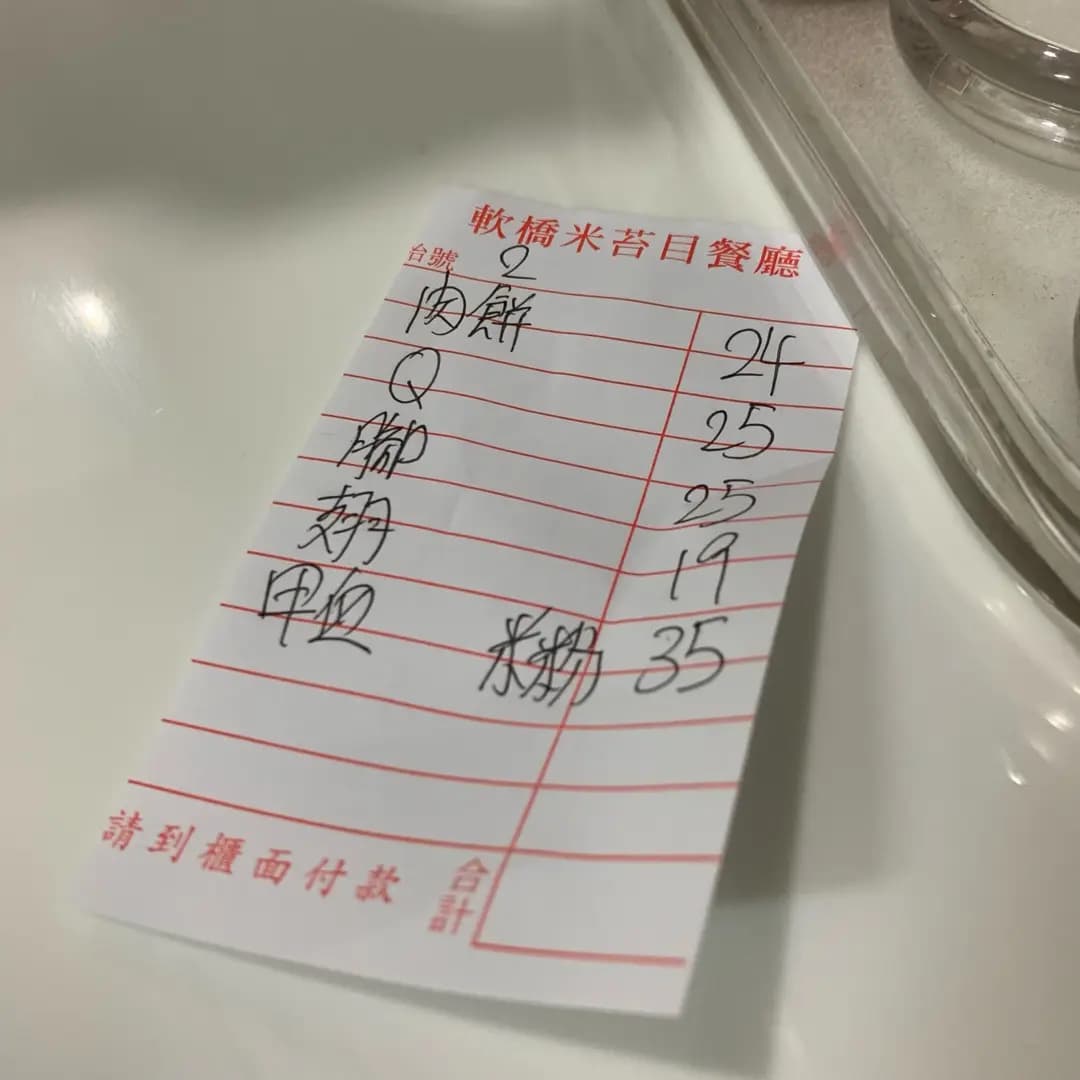 軟橋米苔目餐廳
台號 2
肉餅 24
Q 25
腳 25
翅 19
甲血 米粉 35
請到櫃面付款 合計